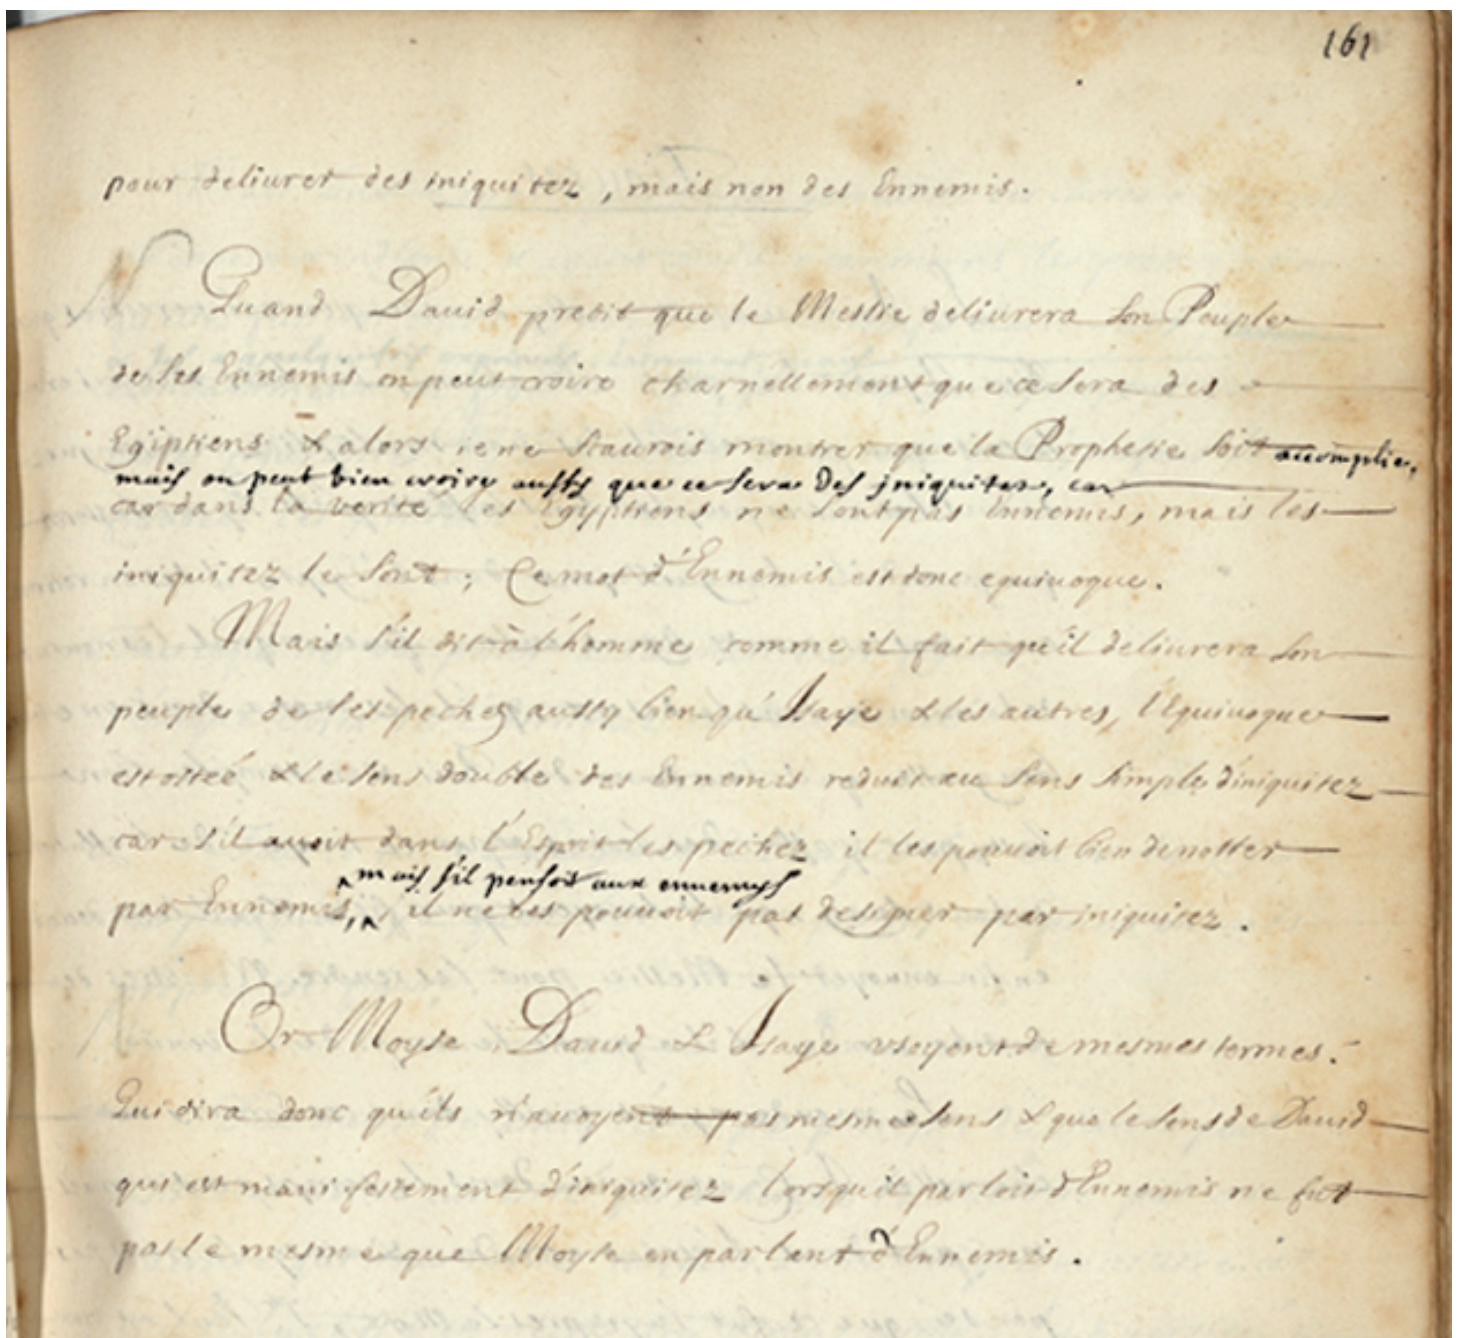 161
pour deliurer des iniquitez, mais non des Ennemis.
Quand Dauid predit que le Messie deliurera son Peuple
de ses Ennemis on peut croire charnellement que ce sera des
Egiptiens & alors ie ne scaurois montrer que la Prophetie soit accomplie,
mais on peut bien croire aussy que ce sera des jniquitez, car
car dans la verité les Egyptiens ne sont pas Ennemis, mais les
iniquitez le sont; Ce mot d'Ennemis est donc equiuoque.
Mais s'il dit à l'homme comme il fait qu'il deliurera son
peuple de ses pechez aussy bien qu'Isaye & les autres, l'Equiuoque
est osteé & le sens double des Ennemis reduit au sens simple d'iniquitez
car s'il auoit dans l'Esprit les pechez il les pouuoit bien denotter
mais s'il pensoit aux ennemys
par Ennemis, il ne les pouuoit pas designer par iniquitez.
Or Moyse Dauid & Isaye vsoyent de mesmes termes.
Qui dira donc qu'ils n'auoyent pas mesme sens & que le sens de Dauid
qui est manifestement d'iniquitez lorsqu'il parloit d'Ennemis ne fut
pas le mesme que Moyse en parlant d'Ennemis.